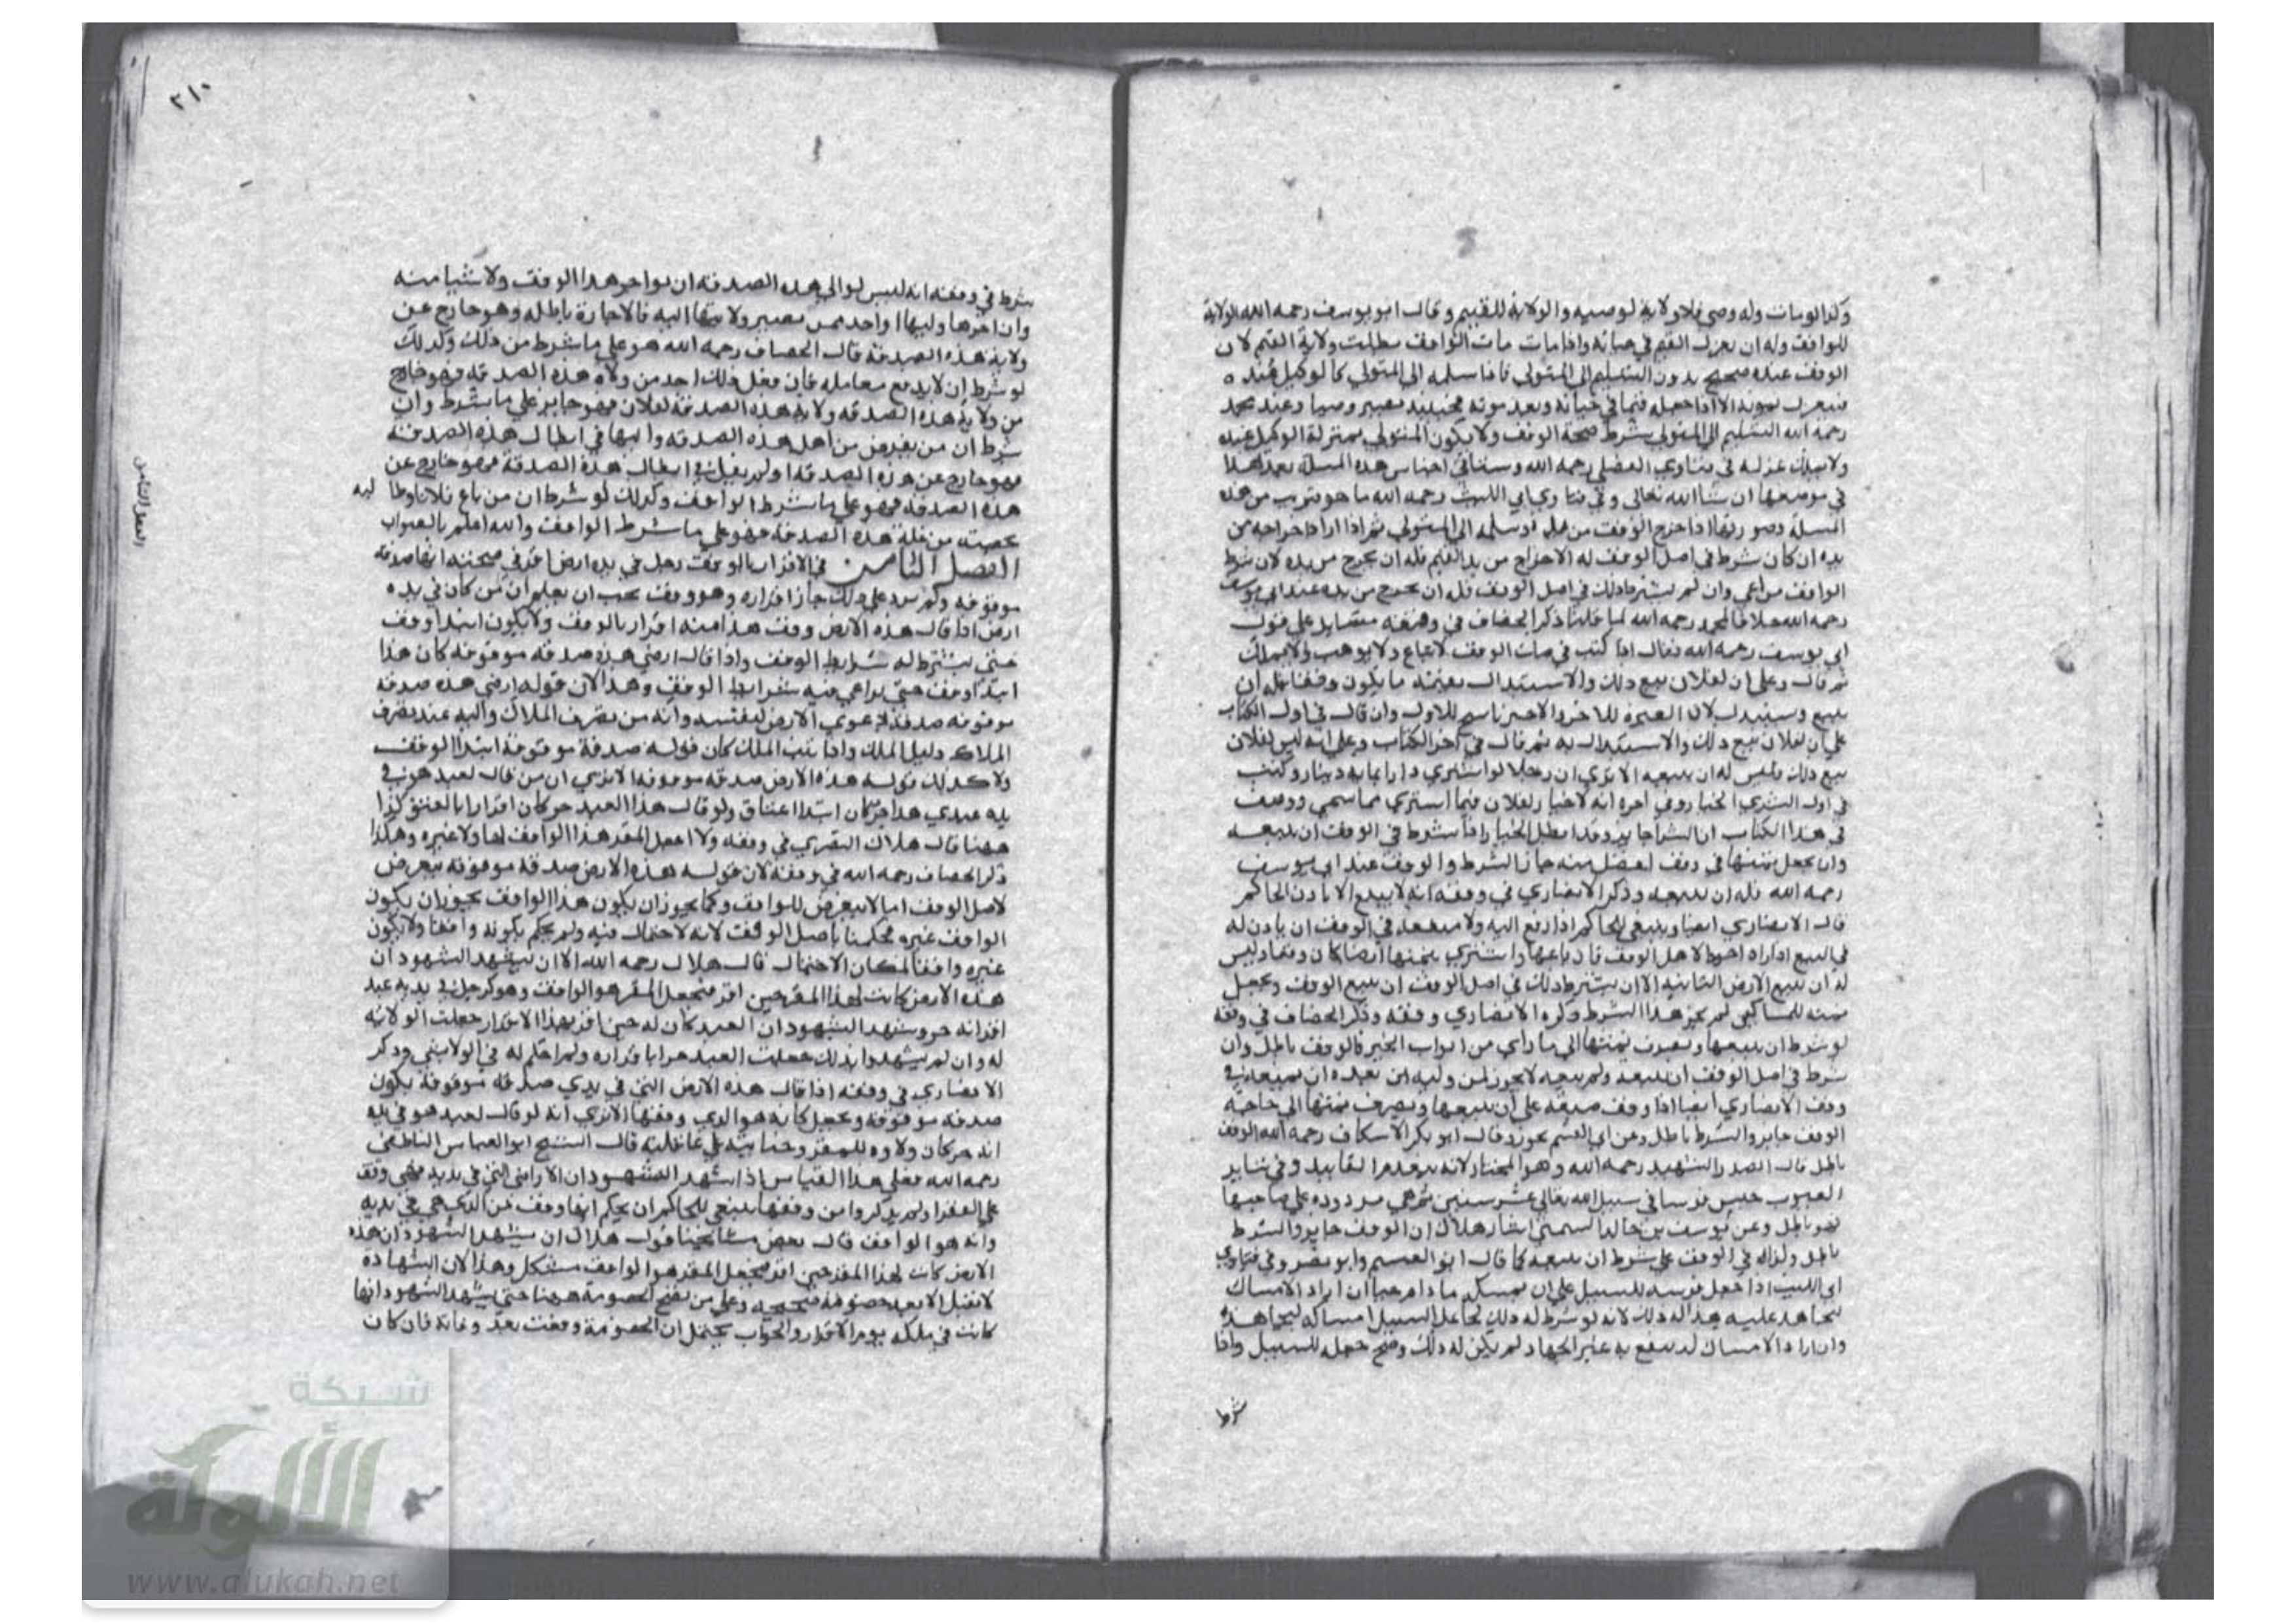 وكذا لو مات وله وصي فلا ولاية لوصيه والولاية للقيم وقال ابو يوسف رحمه الله الولاية
للواقف وله ان يعزل القيم في حياته واذا مات الواقف بطلت ولاية القيم لان
الوقف عنده صحيح بدون التسليم الى المتولي فاذا سلمه الى المتولي كالوكيل عنده
فينعزل بموته الا اذا جعله قيما في حياته وبعد موته فحينئذ يصير وصيا وعند محمد
رحمه الله التسليم الى المتولي شرط صحة الوقف ولا يكون المتولي بمنزلة الوكيل عنده
ولا يملك عزله في فتاوي الفضلي رحمه الله وستأتي اجناس هذه المسلة بعد هذا
في موضعها ان شا الله تعالى وفي فتاوي ابي الليث رحمه الله ما هو قريب من هذه
المسلة وصورتها اذا اخرج الوقف من يده وسلمه الى المتولي ثم اذا اراد اخراجه من
يده ان كان شرط في اصل الوقف له الاخراج من يد القيم فله ان يخرج من يده لان شرط
الواقف مراعى وان لم يشترط ذلك في اصل الوقف فله ان يخرج من يده عند ابي يوسف
رحمه الله خلافا لمحمد رحمه الله لما قلنا ذكر الخصاف في وقفه مسايل على قول
ابي يوسف رحمه الله فقال اذا كتب في صك الوقف لا يباع ولا يوهب ولا يملك
ثم قال وعلى ان لفلان بيع ذلك والاستبدال بثمنه ما يكون وقفا فله ان
يبيع ويستبدل لان العبرة للاخر والاخر ناسخ للاول وان قال في اول الكتاب
على ان لفلان بيع ذلك والاستبدال به ثم قال في اخر الكتاب وعلى انه ليس لفلان
بيع ذلك فليس له ان يبيعه الا ترى ان رجلا لو اشترى دارا بماية دينار وكتب
في اول الشرى الخيار وفي اخره انه لا خيار لفلان فيما اشترى مما سمي ووصف
في هذا الكتاب ان الشرا جايز وقد ابطل الخيار واذا شرط في الوقف ان يبيعه
وان يجعل ثمنها في وقف افضل منه جاز الشرط والوقف عند ابي يوسف
رحمه الله فله ان يبيعه وذكر الانصاري في وقفه انه لا يبيع الا باذن الحاكم
قال الانصاري ايضا وينبغي للحاكم اذا رفع اليه ولا منفعة في الوقف ان ياذن له
في البيع اذا راه احوط لاهل الوقف فان باعها واشترى بثمنها ارضا كان وقفا وليس
له ان يبيع الارض الثانية الا ان يشترط ذلك في اصل الوقف ان يبيع الوقف ويجعل
ثمنه للمساكين لم يجز هذا الشرط ذكره الانصاري وقفه وذكر الخصاف في وقفه
لو شرط ان يبيعها ويصرف ثمنها الى ما راى من ابواب الخير فالوقف باطل وان
شرط في اصل الوقف ان يبيعه ولم يبيعه لا يجوز لمن وليه من بعده ان يبيعه في
وقف الانصاري ايضا اذا وقف ضيعة على ان يبيعها ويصرف ثمنها الى حاجته
الوقف جايز والشرط باطل وعن ابي القسم يجوز وقال ابو بكر الاسكاف رحمه الله الوقف
باطل قال الصدر الشهيد رحمه الله وهو المختار لانه ينعدم التابيد وفي
العيوب حبس فرسا في سبيل الله تعالى عشر سنين ثم هي مردودة على صاحبها
فهو باطل وعن يوسف بن خالد السمتي استاذ هلال ان الوقف جايز والشرط
باطل ولزاله في الوقف على شرط ان يبيعه كما قال ابو القسم وابو نصر وفي فتاوي
ابي الليث اذا جعل فرسه للسبيل على ان يمسكه ما دام حيا ان اراد الامساك
ليجاهد عليه فله ذلك لانه لو شرط له ذلك لجاعل السبيل امساكه ليجاهد
وان اراد الامساك لينتفع به غير الجهاد لم يكن له ذلك وصح جعله للسبيل واذا
شرط
٢١٠
شرط في وقفه انه ليس لوالي هذه الصدقة ان يواجر هذا الوقف ولا شيا منه
وان اجرها وليها واحد ممن يصير ولايتها اليه فالاجارة باطلة وهو خارج عن
ولاية هذه الصدقة قال الخصاف رحمه الله هو على ما شرط من ذلك وكذلك
لو شرط ان لا يدفع معاملة فان فعل ذلك احد من ولاة هذه الصدقة فهو خارج
من ولاية هذه الصدقة وولاية هذه الصدقة لفلان فهو جايز على ما شرط وان
شرط ان من تعرض من اهل هذه الصدقة واليها في ابطال هذه الصدقة
فهو خارج عن هذه الصدقة او لم يقبل في ابطال هذه الصدقة فهو خارج عن
هذه الصدقة فهو على ما شرط الواقف وكذلك لو شرط ان من باع فلانا وطالبه
بحصته من غلة هذه الصدقة فهو على ما شرط الواقف والله اعلم بالصواب
الفصل الثامن في الاقرار بالوقف رجل في يده ارض اقر في صحته انها صدقة
موقوفة ولم يزد على ذلك جاز اقراره وهو وقف يجب ان يعلم ان من كان في يده
ارض اذا قال هذه الارض وقف هذا منه اقرار بالوقف ولا يكون ابتدا وقف
حتى يشترط له شرايط الوقف واذا قال ارضي هذه صدقة موقوفة كان هذا
ابتدا وقف حتى يراعى فيه شرايط الوقف وهذا لان قوله ارضي هذه صدقة
موقوفة صدقة دعوى الارض لنفسه وانه من تصرف الملاك واليد عند تصرف
الملاك دليل الملك واذا ثبت الملك كان قوله صدقة موقوفة ابتدا الوقف
ولا كذلك قوله هذه الارض صدقة موقوفة الا ترى ان من قال لعبد هو في
يده عبدي هذا حر كان ابتدا اعتاق ولو قال هذا العبد حر كان اقرارا بالعتق كذا
ههنا قال هلال البصري في وقفه ولا اجعل المقر هذا الواقف لها ولا غيره وهكذا
ذكر الخصاف رحمه الله في وقفه لان قوله هذه الارض صدقة موقوفة تعرض
لاصل الوقف اما لا يتعرض للواقف وكما يجوز ان يكون هذا الواقف يجوز ان يكون
الواقف غيره فحكمنا باصل الوقف لانه لا احتمال فيه ولم يحكم بكونه واقفا ولا يكون
غيره واقفا لمكان الاحتمال قال هلال رحمه الله الا ان يشهد الشهود ان
هذه الارض كانت لهذا المقر حين اقر فنجعل المقر هو الواقف وهو كرجل في يديه عبد
اقر انه حر وشهد الشهود ان العبد كان له حين اقر بهذا الاقرار جعلت الولاية
له وان لم يشهدوا بذلك جعلت العبد حرا باقراره ولم احكم له في الولا بشي وذكر
الانصاري في وقفه اذا قال هذه الارض التي في يدي صدقة موقوفة يكون
صدقة موقوفة ويجعل كانه هو الذي وقفها الا ترى انه لو قال لعبد هو في يده
انه حر كان ولاوه للمقر قال الشيخ ابو العباس الناطفي
رحمه الله فعلى هذا القياس اذا شهد الشهود ان الاراضي التي في يديه هي وقف
على الفقرا ولم يذكروا من وقفها ينبغي للحاكم ان يحكم انها وقف من الذي هي في يديه
وانه هو الواقف قال بعض مشايخنا قول هلال ان يشهد الشهود ان هذه
الارض كانت لهذا المقر حين اقر فنجعل المقر هو الواقف مشكل وهذا لان الشهادة
لا تقبل الا بعد خصومة صحيحة وعلى من تصح الخصومة ههنا حتى يشهد الشهود انها
كانت في ملكه يوم الاقرار والجواب يحتمل ان الخصومة وقعت بعد وفاته فان كان
الفصل الثامن
شبكة
الألوكة
www.alukah.net